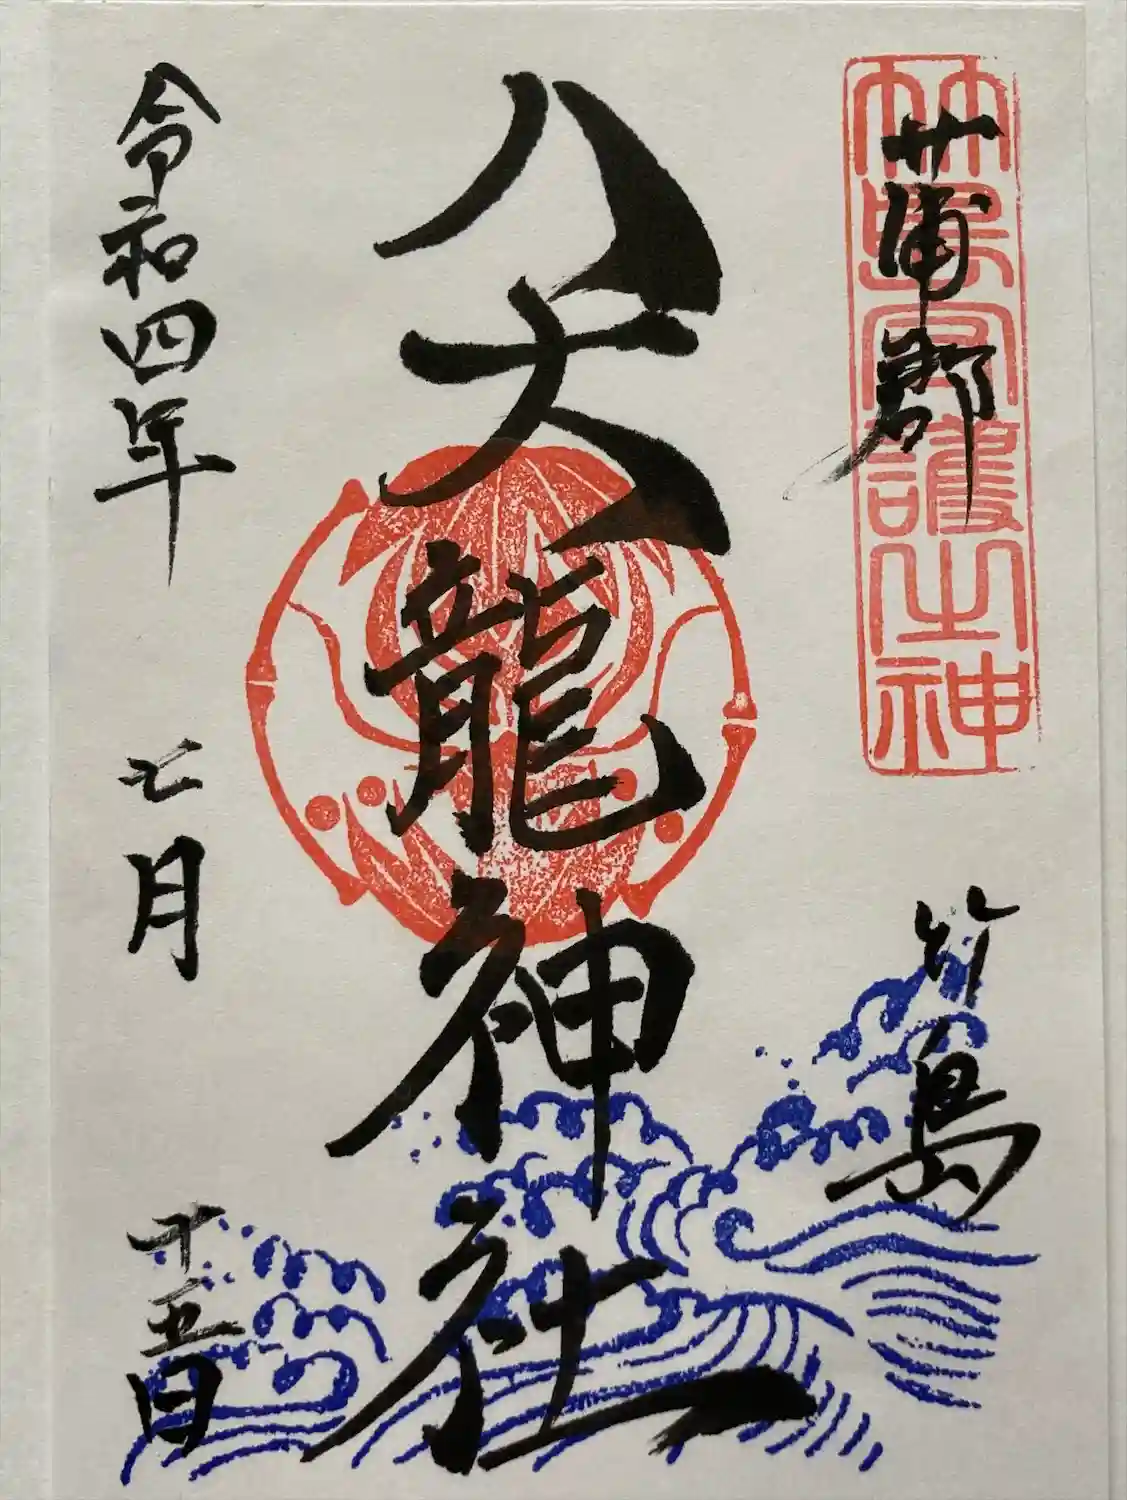 蒲郡
竹島
竹島守護之神
八大龍神社
令和四年
七月
十五日